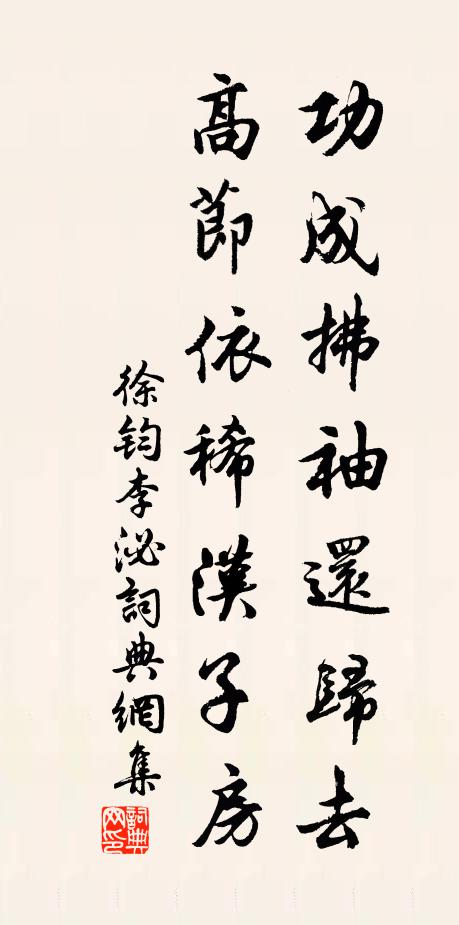 功成拂袖還歸去
高節依稀漢子房
徐鈞李泌詞典網集
詞典網印